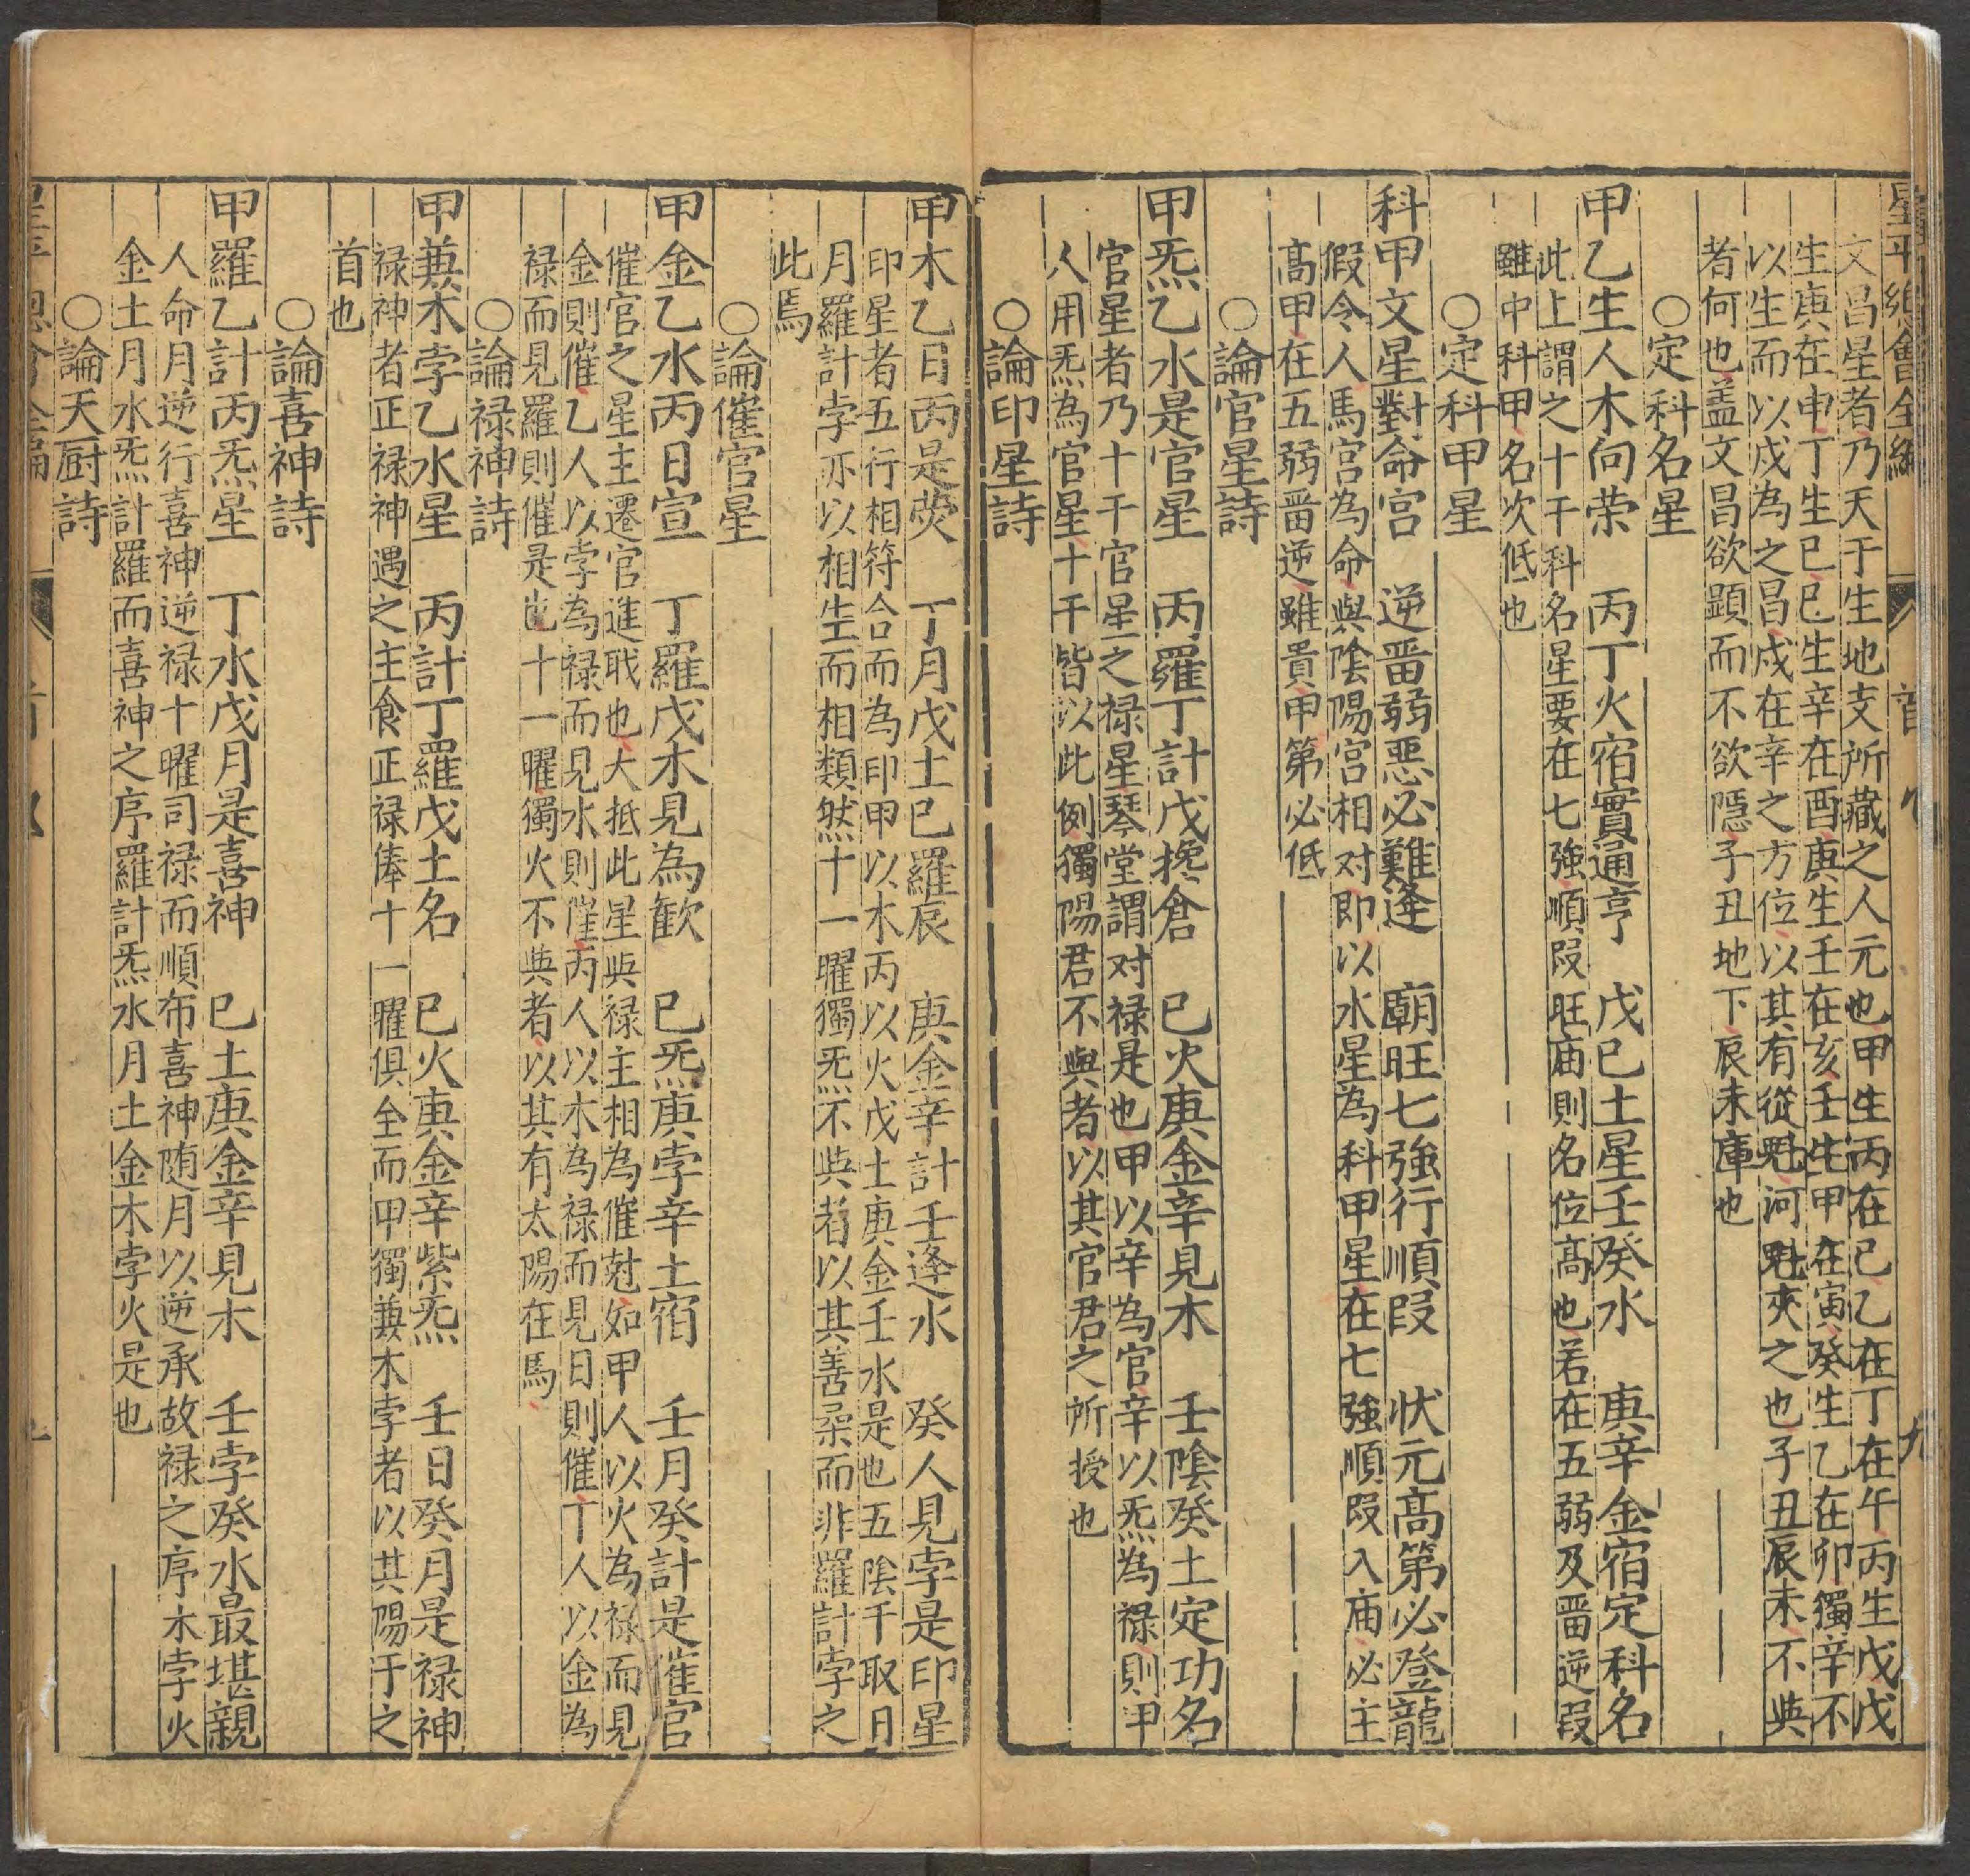 星平總會全編　首　九
文昌星者乃天于生地支所藏之人元也甲生丙在巳乙在丁在午丙生戊戊
生庚在申丁生已已生辛在酉庚生壬在亥壬生甲在寅癸生乙在卯獨辛不
以生而以戌為之昌戌在辛之方位以其有從魁河魁夾之也子丑辰未不與
者何也盖文昌欲顕而不欲隱子丑地下辰未庫也
○定科名星
甲乙生人木向荣　丙丁火宿實通亨　戊巳土星壬癸水　庚辛金宿定科名
此上謂之十干科名星要在七強順叚旺庙則名位高也若在五弱及畱逆叚
雖中科甲名次低也
○定科甲星
科甲文星對命宮　逆畱弱惡必難逢　廟旺七強行順叚　状元高第必登龍
假令人馬宮為命與陰陽宮相对即以水星為科甲星在七強順叚入庙必主
高甲在五弱畱逆雖貴甲第必低
○論官星詩
甲炁乙水是官星　丙羅丁計戊攙倉　巳火庚金辛見木　壬陰癸土定功名
官星者乃十干官星之禄星琴堂謂对禄是也甲以辛為官辛以炁為禄則甲
人用炁為官星十干皆以此例獨陽君不與者以其官君之所授也
○論印星詩
甲木乙日丙是熒　丁月戊土巳羅辰　庚金辛計壬逢水　癸人見孛是印星
印星者五行相符合而為印甲以木丙以火戊土庚金壬水是也五陰干取日
月羅計孛亦以相生而相類然十一曜獨炁不與者以其善柔而非羅計孛之
此焉
○論催官星
甲金乙水丙日宣　丁羅戊木見為歓　巳炁庚孛辛土宿　壬月癸計是催官
催官之星主遷官進職也大抵此星與禄主相為催尅如甲人以火為禄而見
金則催乙人以孛為禄而見水則催丙人以木為禄而見日則催丁人以金為
禄而見羅則催是也十一曜獨火不與者以其有太陽在焉
○論禄神詩
甲兼木孛乙水星　丙計丁羅戊土名　巳火庚金辛紫炁　壬日癸月是禄神
禄神者正禄神遇之主食正禄俸十一曜俱全而甲獨兼木孛者以其陽干之
首也
○論喜神詩
甲羅乙計丙炁星　丁水戊月是喜神　巳土庚金辛見木　壬孛癸水最堪親
人命月逆行喜神逆禄十曜司禄而順布喜神随月以逆承故禄之序木孛火
金土月水炁計羅而喜神之序羅計炁水月土金木孛火是也
○論天厨詩